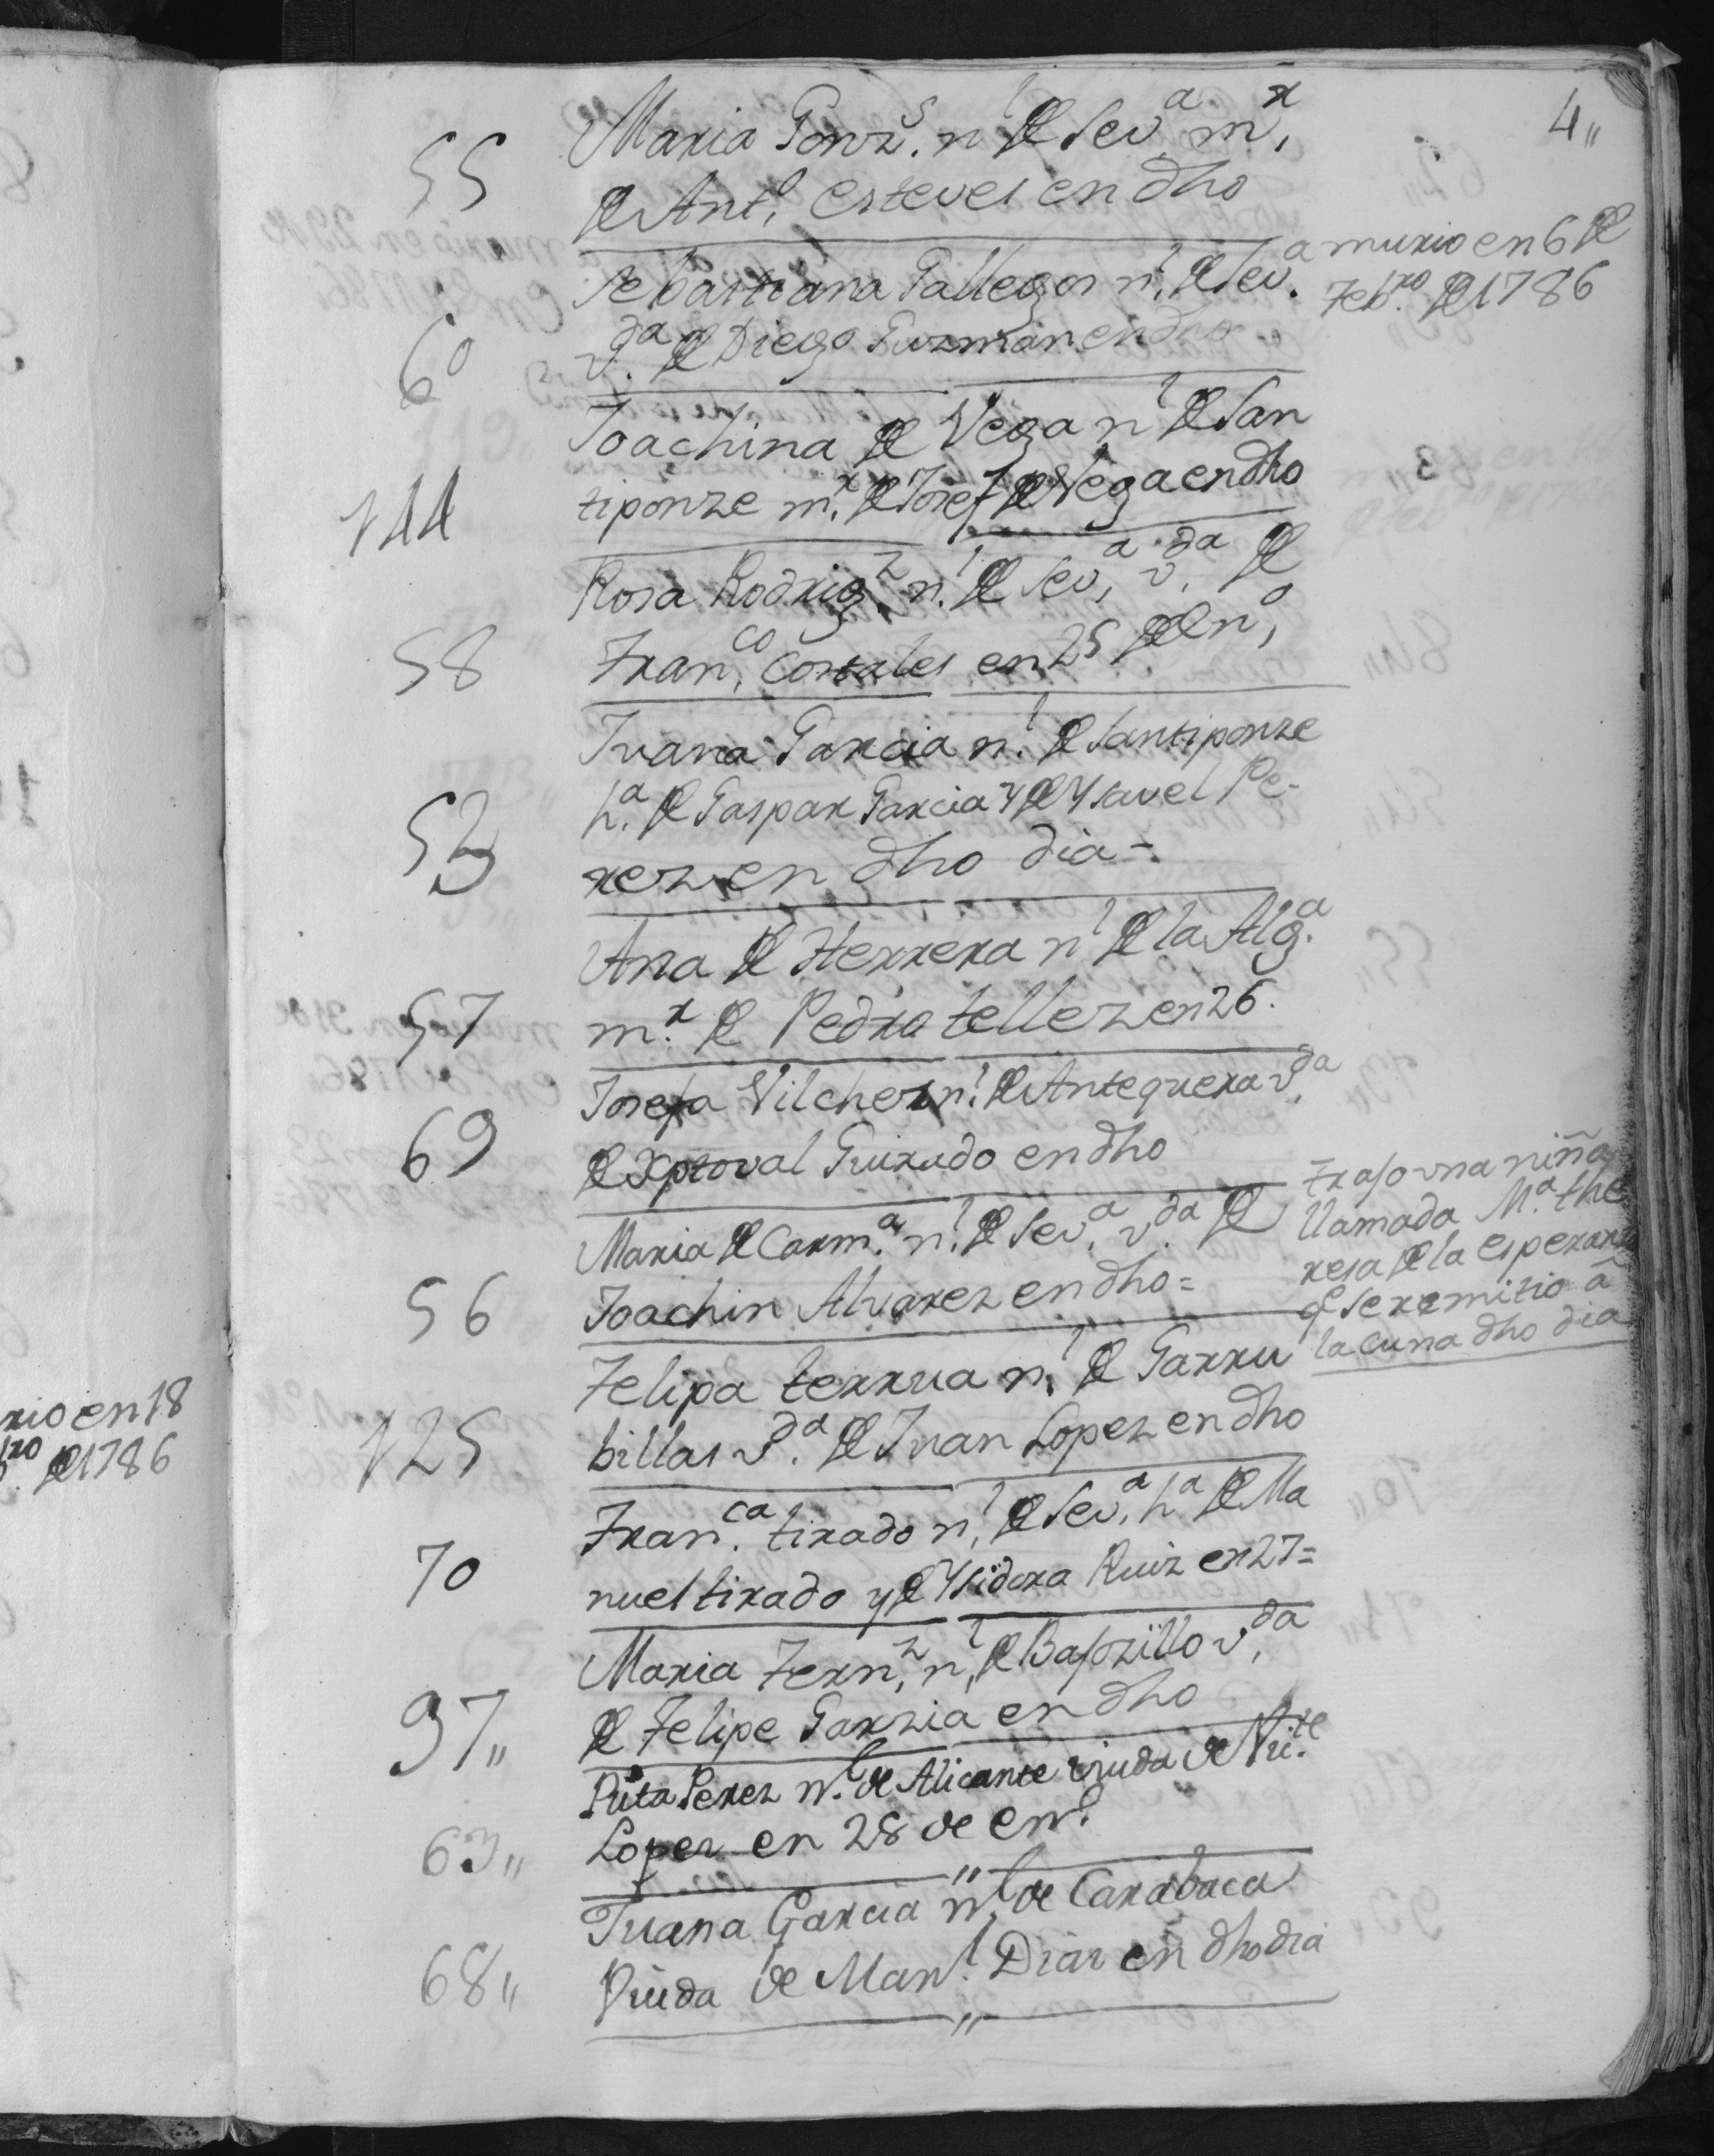 4,,
55
Maria Gonz.s n.l de Sev.a m.r
de Ant.o esteves en dho
60
Sebastiana Gallegos n.l de Sev.a
v.da de Diego Guzman en dho
murio en 6 de
Feb.ro de 1786
144
Joachina de Vega n.l de San
tiponze m.r de Josef de Vega en dho
58
Rosa Rodrig.z n.l de Sev.a v.da de
Fran.co Cortales en 25 de en.o
53
Juana Garcia n.l de Santiponze
h.a de Gaspar Garcia y de Ysavel Pe-
rez en dho dia-
57
Ana de Herrera n.l de la Alg.a
m.r de Pedro tellez en 26.
69
Josefa Vilchez n.l de Antequera v.da
de Xptoval Guirado en dho
56
Maria de Carm.a n.l de Sev.a v.da de
Joachin Alvarez en dho=
trajo vna niña
llamada M.a the
resa de la esperanz
q Se remitio â
la cuna dho dia
125
Felipa terrua n.l de Garru
billas v.da de Juan Lopez en dho
70
Fran.ca tirado n.l de Sev.a h.a de Ma
nuel tirado y de Ysidora Ruiz en 27=
97,,
Maria Fern.z n.l de v.da
de Felipe Garzia en dho
63,,
Rita Perez n.l de Alicante viuda de Vic.te
Lopez en 28 de en.o
68,,
Juana Garcia n.l de Carabaca
Viuda de Man.l Diaz en dho dia
rio en 18
de 1786